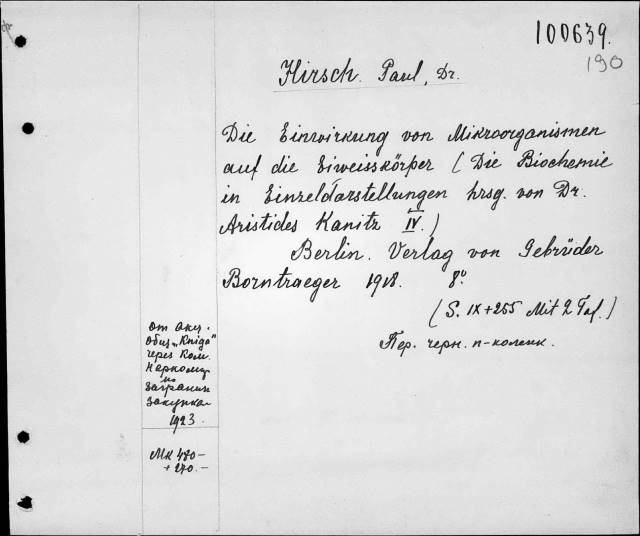 100639.
190
Hirsch. Paul, Dr.
Die Einwirkung von Mikroorganismen
auf die Eiweisskörper ( Die Biochemie
in Einzeldarstellungen hrsg. von Dr.
Aristides Kanitz IV. )
Berlin. Verlag von Gebrüder
Borntraeger 1918. 8°
( S. IX+255 Mit 2 Taf. )
Пер. черн. п-коленк.
от Акц.
Общ „Kniga"
через Ком.
Наркомпр
по
загранич
закупкам
1923.
Mk 480-
+270.-